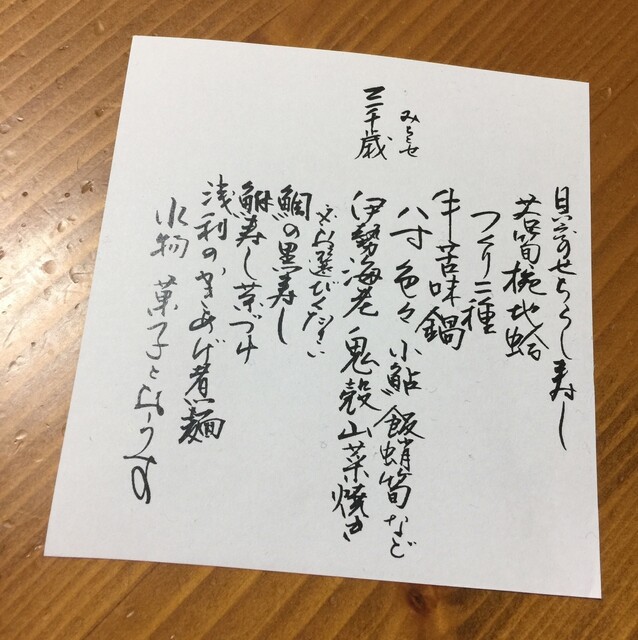 三千歳
みとせ
貝寄せちらし寿し
若筍椀地蛤
つくり三種
牛苦味鍋
八寸 色々 小鮎 飯蛸 筍など
伊勢海老 鬼殻山菜焼き
選びください
鯛の 寿し
鮒寿し茶づけ
浅利のかきあげ煮麺
水物 菓子とおうす